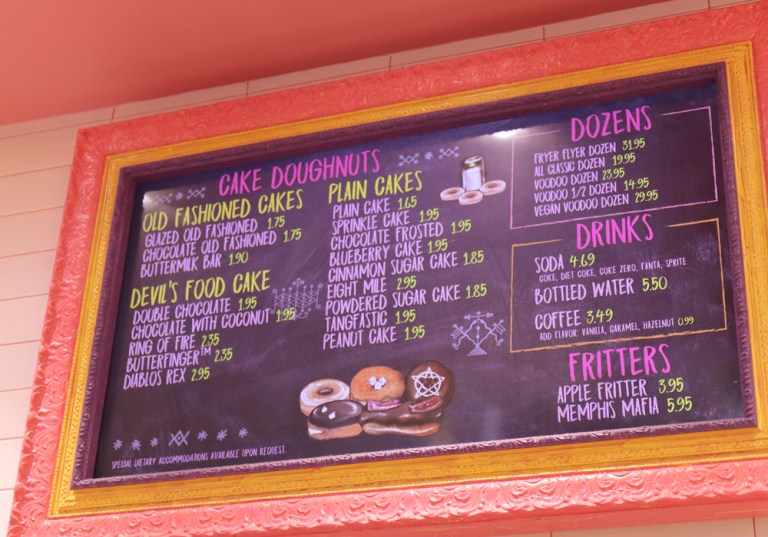 CAKE DOUGHNUTS
OLD FASHIONED CAKES
GLAZED OLD FASHIONED 1.75
CHOCOLATE OLD FASHIONED 1.75
BUTTERMILK BAR 1.90
DEVIL'S FOOD CAKE
DOUBLE CHOCOLATE 1.95
CHOCOLATE WITH COCONUT 1.95
RING OF FIRE 2.35
BUTTERFINGER™ 2.35
DIABLOS REX 2.95
PLAIN CAKES
PLAIN CAKE 1.65
SPRINKLE CAKE 1.95
CHOCOLATE FROSTED 1.95
BLUEBERRY CAKE 1.95
CINNAMON SUGAR CAKE 1.85
EIGHT MILE 2.95
POWDERED SUGAR CAKE 1.85
TANGFASTIC 1.95
PEANUT CAKE 1.95
DOZENS
FRYER FLYER DOZEN 31.95
ALL CLASSIC DOZEN 19.95
VOODOO DOZEN 23.95
VOODOO 1/2 DOZEN 14.95
VEGAN VOODOO DOZEN 29.95
DRINKS
SODA 4.69
COKE, DIET COKE, COKE ZERO, FANTA, SPRITE
BOTTLED WATER 5.50
COFFEE 3.49
ADD FLAVOR: VANILLA, CARAMEL, HAZELNUT 0.99
FRITTERS
APPLE FRITTER 3.95
MEMPHIS MAFIA 5.95
SPECIAL DIETARY ACCOMMODATIONS AVAILABLE UPON REQUEST.